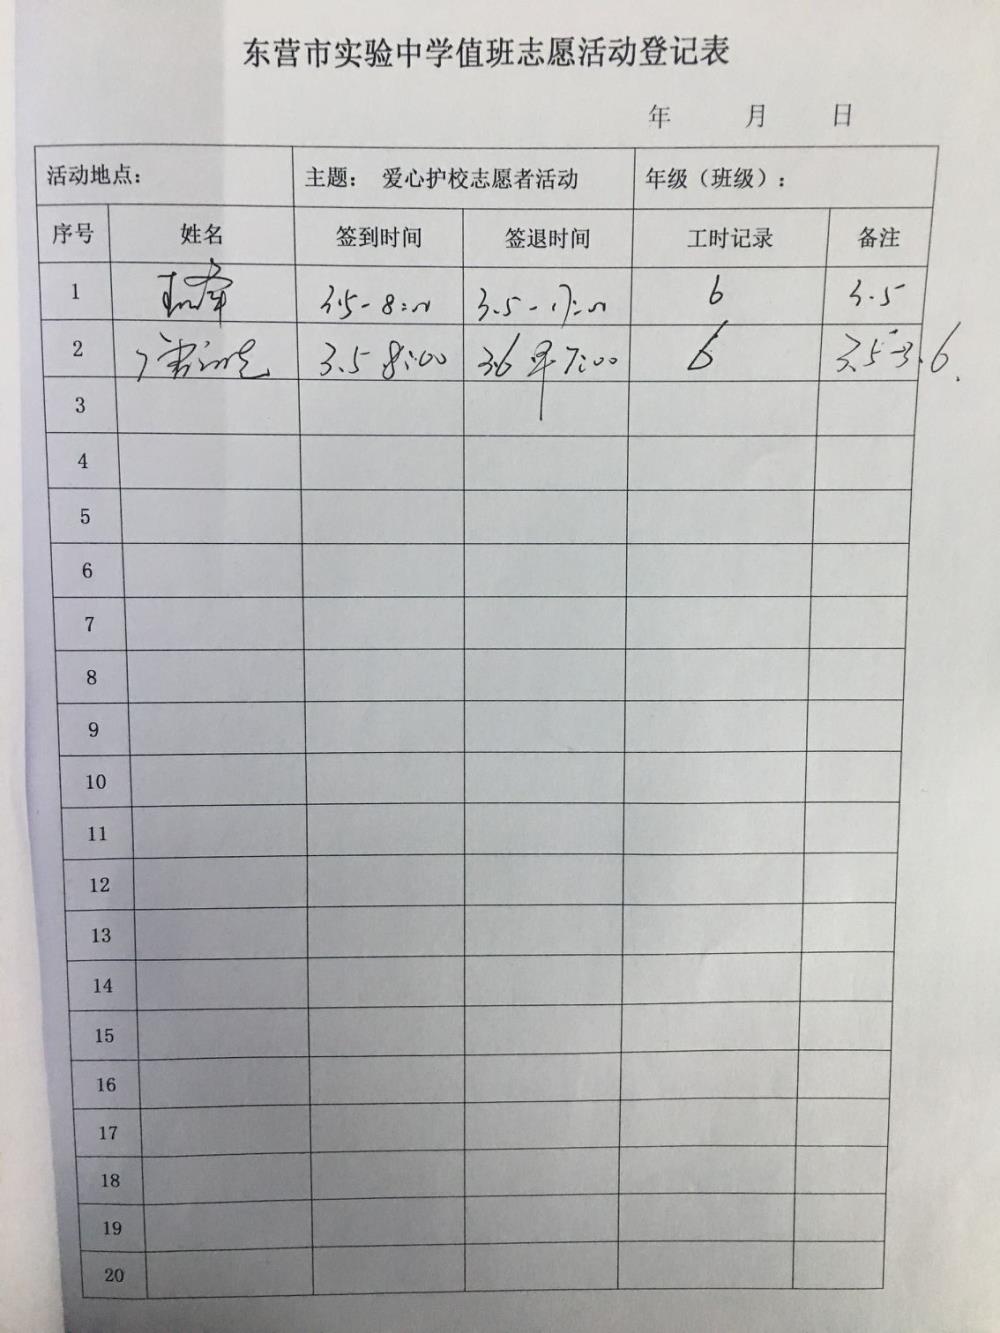 东营市实验中学值班志愿活动登记表
年 月 日
活动地点： 主题： 爱心护校志愿者活动 年级（班级）：
序号 姓名 签到时间 签退时间 工时记录 备注
1 3.5-8:00 3.5-17:00 6 3.5
2 3.5 8:00 3.6 早7:00 6 3.5-3.6.
3
4
5
6
7
8
9
10
11
12
13
14
15
16
17
18
19
20